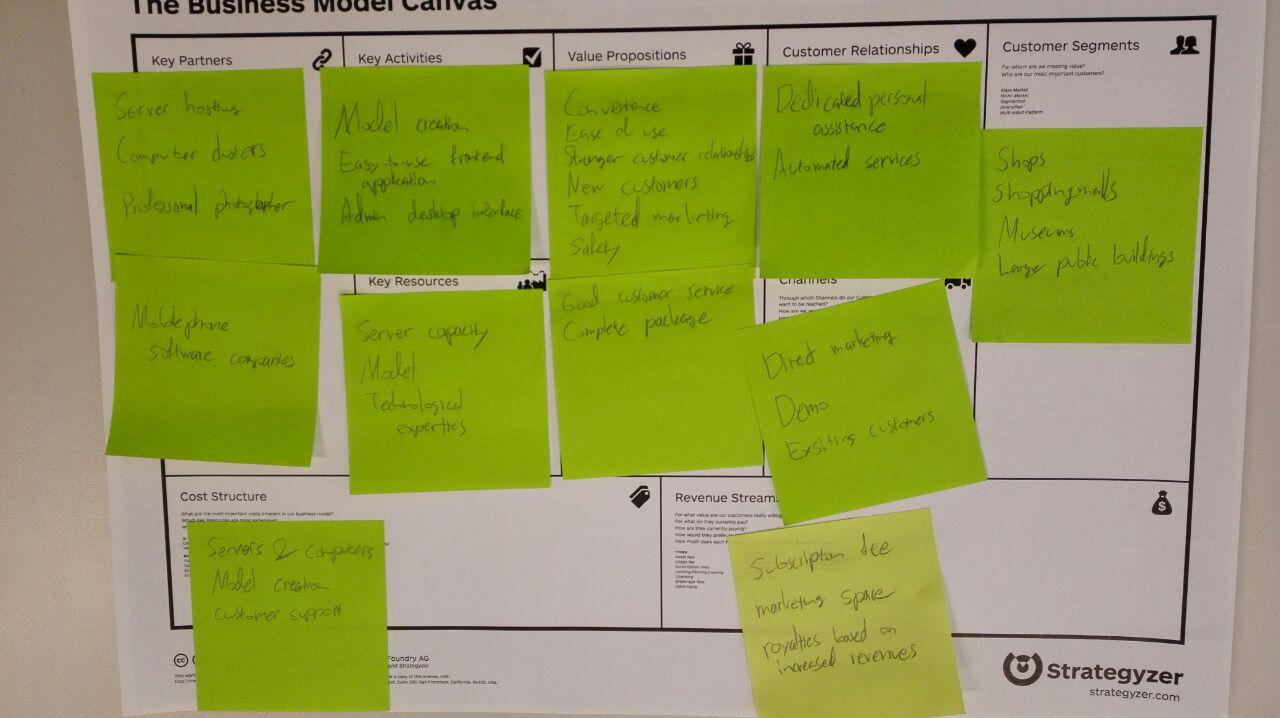 The Business Model Canvas
Key Partners
Server hosting
Computer clusters
Professional photographer
Mobilephone
software companies
Key Activities
Model creation
Easy-to-use frontend
application
Admin desktop interface
Key Resources
Server capacity
Model
Technological
experties
Value Propositions
Convenience
Ease of use
Stronger customer relationships
New customers
Targeted marketing
Safety
Good customer service
Complete package
Customer Relationships
Dedicated personal
assistance
Automated services
Channels
Through which Channels do our Cust
want to be reached?
How are we
Direct marketing
Demo
Exsiting customers
Customer Segments
For whom are we creating value?
Who are our most important customers?
Mass Market
Niche Market
Segmented
Diversified
Multi-sided Platform
Shops
Shoppingmalls
Museums
Large public buildings
Cost Structure
What are the most important costs inherent in our business model?
Which Key Resources are most expensive?
Servers & computers
Model creation
customer support
Revenue Streams
For what value are our customers really willing
For what do they currently pay?
How are they currently paying?
How would they prefer to
How much does each
TYPES
Asset sale
Usage fee
Subscription Fees
Lending/Renting/Leasing
Licensing
Brokerage fees
Advertising
Subscription fee
marketing space
royalties based on
increased revenues
cc
Foundry AG
and Strategyzer
This work
http://
a copy of this license, visit:
Suite 300, San Francisco, California, 94105, USA.
Strategyzer
strategyzer.com